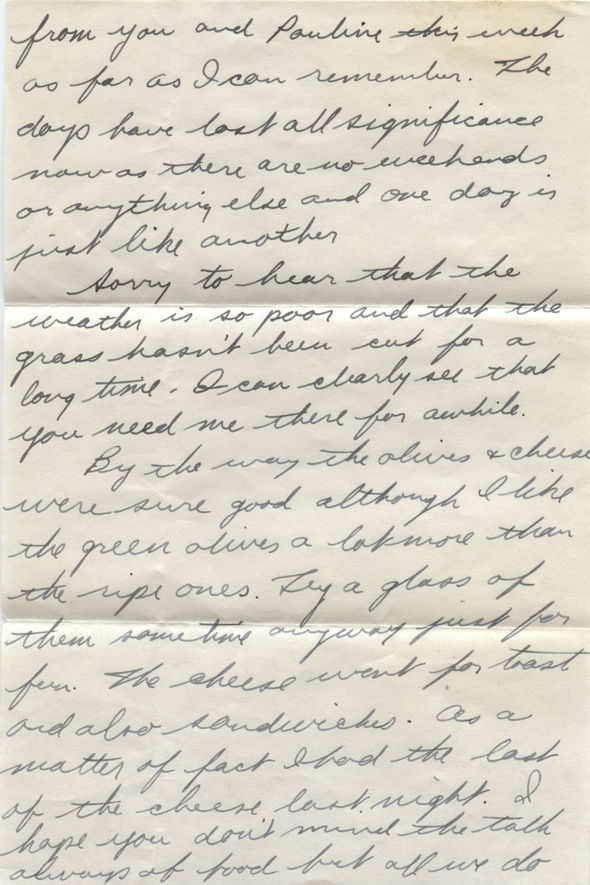 from you and Pauline this week
as far as I can remember. The
days have lost all significance
now as there are no weekends
or anything else and one day is
just like another
Sorry to hear that the
weather is so poor and that the
grass hasn't been cut for a
long time. I can clearly see that
you need me there for awhile.
By the way the olives & cheese
were sure good although I like
the green olives a lot more than
the ripe ones. Try a glass of
them sometime anyway just for
fun. The cheese went for toast
and also sandwiches. As a
matter of fact I had the last
of the cheese last night. I
hope you don't mind the talk
always of food but all we do